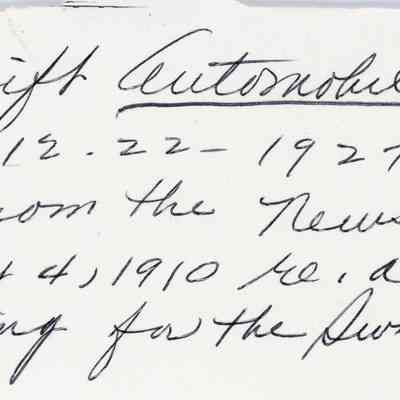 ift Automobile
12-22-1927
rom the News
t 4, 1910 re. a
ng for the Swi